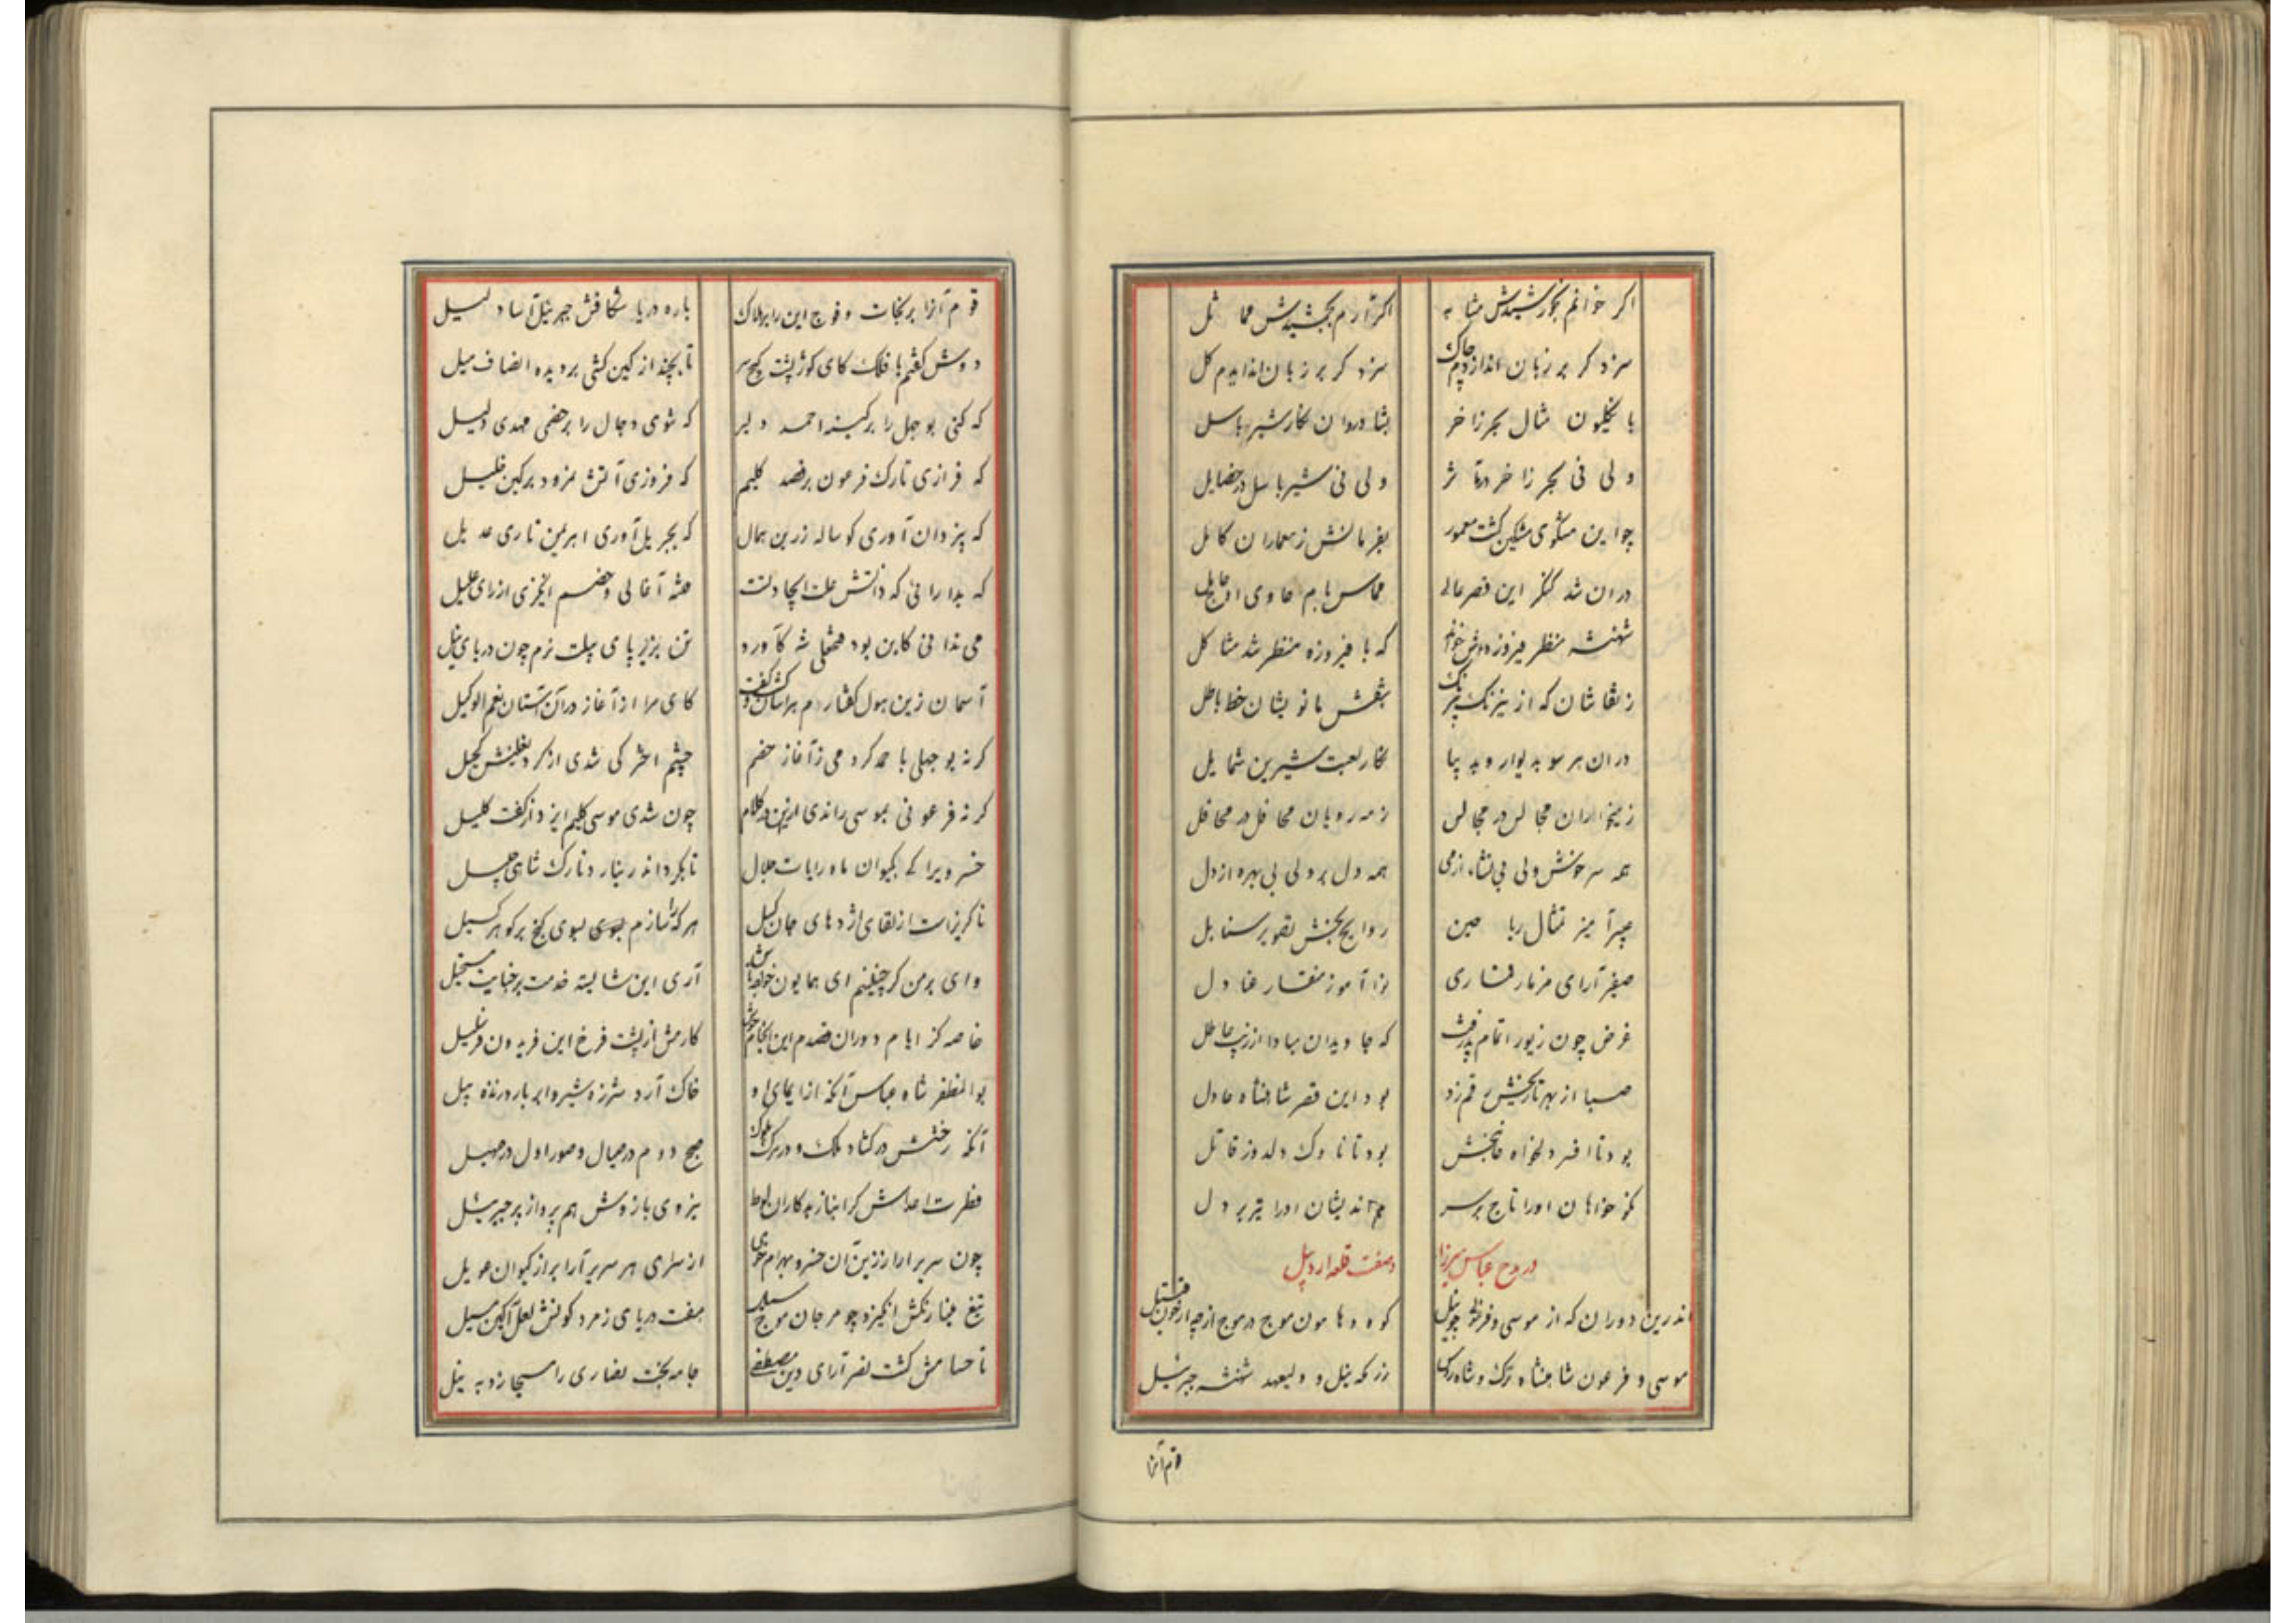 اگر خوانم بخورشیدش مشابه اگر آرم بجمشیدش مماثل
سزد گر بر زبان اندازدم چاک سزد گر بر زبان اندایدم گل
با نکلیون مثال بحر زاخر بشادروان نگار شیر باسل
ولی نی بحر زاخر در مآثر ولی نی شیر باسل در خصایل
چو این مشکوی مشکین گشت معمور بفرمانش ز معماران کامل
در ان شد کنکر این قصر عالی مماس بام حاوی
شهنشه منظر فیروزه اش خواند که با فیروزه منظر شد مشاکل
ز نقاشان که از نیرنگ بر نقش مانویشان خط باطل
در ان هر سو بدیوار و بد پیا نگار لعبت شیرین شمایل
ز میخواران مجالس در مجالس ز مه رویان محافل در محافل
همه سرخوش ولی بی نشاء از می همه دل بر ولی بی بهره از دل
عبیر آمیز تمثال ریاحین روایح بخش تصویر سنابل
صفیر آرای مزمار قماری نوا آموز منقار عنادل
غرض چون زیور اتمام پذرفت که جاویدان مبادا از زیب عاطل
صبا از بهر تاریخش رقم زد بود این قصر شاهنشاه عادل
بود تا افسر دلخواه خانبخش بود تا ناوک دلدوز قاتل
نکو خواهان او را تاج بر سر بد اندیشان او را تیر بر دل
در مدح عباس میرزا و صفت قلعه اردبیل
اندرین دوران که از موسی و فرعون چو نیل کوه و هامون موج در موج از چپ از خون قتیل
موسی و فرعون شاهنشاه ترک و شاه روس رزمگه نیل و ولیعهد شهنشه جبرئیل
قوم آنرا
قوم آنرا بر نجات و فوج این را بر هلاک باره دریا شکافش جبرئیل آسا دلیل
دوش گفتم با فلک کای کوژپشت کج سر تا بچند از کین کشی بر دیده انصاف میل
که کنی بوجهل را بر کینه احمد دلیر که شوی دجال را بر خصمی مهدی دلیل
که فرازی تارک فرعون بر قصد کلیم که فروزی آتش نمرود بر کین خلیل
که بیزدان آوری گوساله زرین همال که بجبریل آوری اهرمن ناری عدیل
که بدارائی که ذاتش علت ایجاد تست فتنه آغالی و خصم انگیزی از رای علیل
می ندانی کاین بود همتای شه کآورد تن بزیر پای پیلت نرم چون دربای نیل
آسمان زین هول گفتارم هراسان گشت و گفت کای مرا از آغاز در آن آستان نعم الوکیل
گر نه بوجهلی با حمد کردمی ز آغاز خصم چشم اختر کی شدی از گرد نعلینش کحیل
گر نه فرعونی بموسی راندی ارنی در کلام چون شدی موسی کلیم ایزد از گفت کلیل
خسرویرا که بکیوان ماه رایات جلال تا بگرداند ر بنارد تارک شاهی جلیل
ناگریز است از لقای اژدهای جان گسل هر که را سازم بسوی گنج پر گوهر سبیل
وای بر من گر چنینم ای همایون خواجه باش آری این شایسته خدمت بر خیانت مستحیل
خاصه کز ایام دوران قصدم این انجام کارمش از پشت فرخ این فریدون فر سلیل
بوالمظفر شاه عباس آنکه از ایمای او خاک آرد شرزه شیر و ابر بارد زنده پیل
آنکه رختش در گشاد ملک و در مرگ ملوک صبح دوم در صیال و صور اول در صهیل
فطرت اعداش گرانباز بدکاران لوط نیروی بازوش هم پرواز پر جبرئیل
چون سریر ارا رزین آن خسرو بهرام خوی از سرای هر سریر آرا براز کیوان عویل
تیغ مینا رنگش انگیزد چو مرجان موج سیل هفت دریای زمرد گونش لعل آگین مسیل
تا حسامش گشت نصر آرای دین مصطفی جامه بخت نصاری را مسیحا زد به نیل